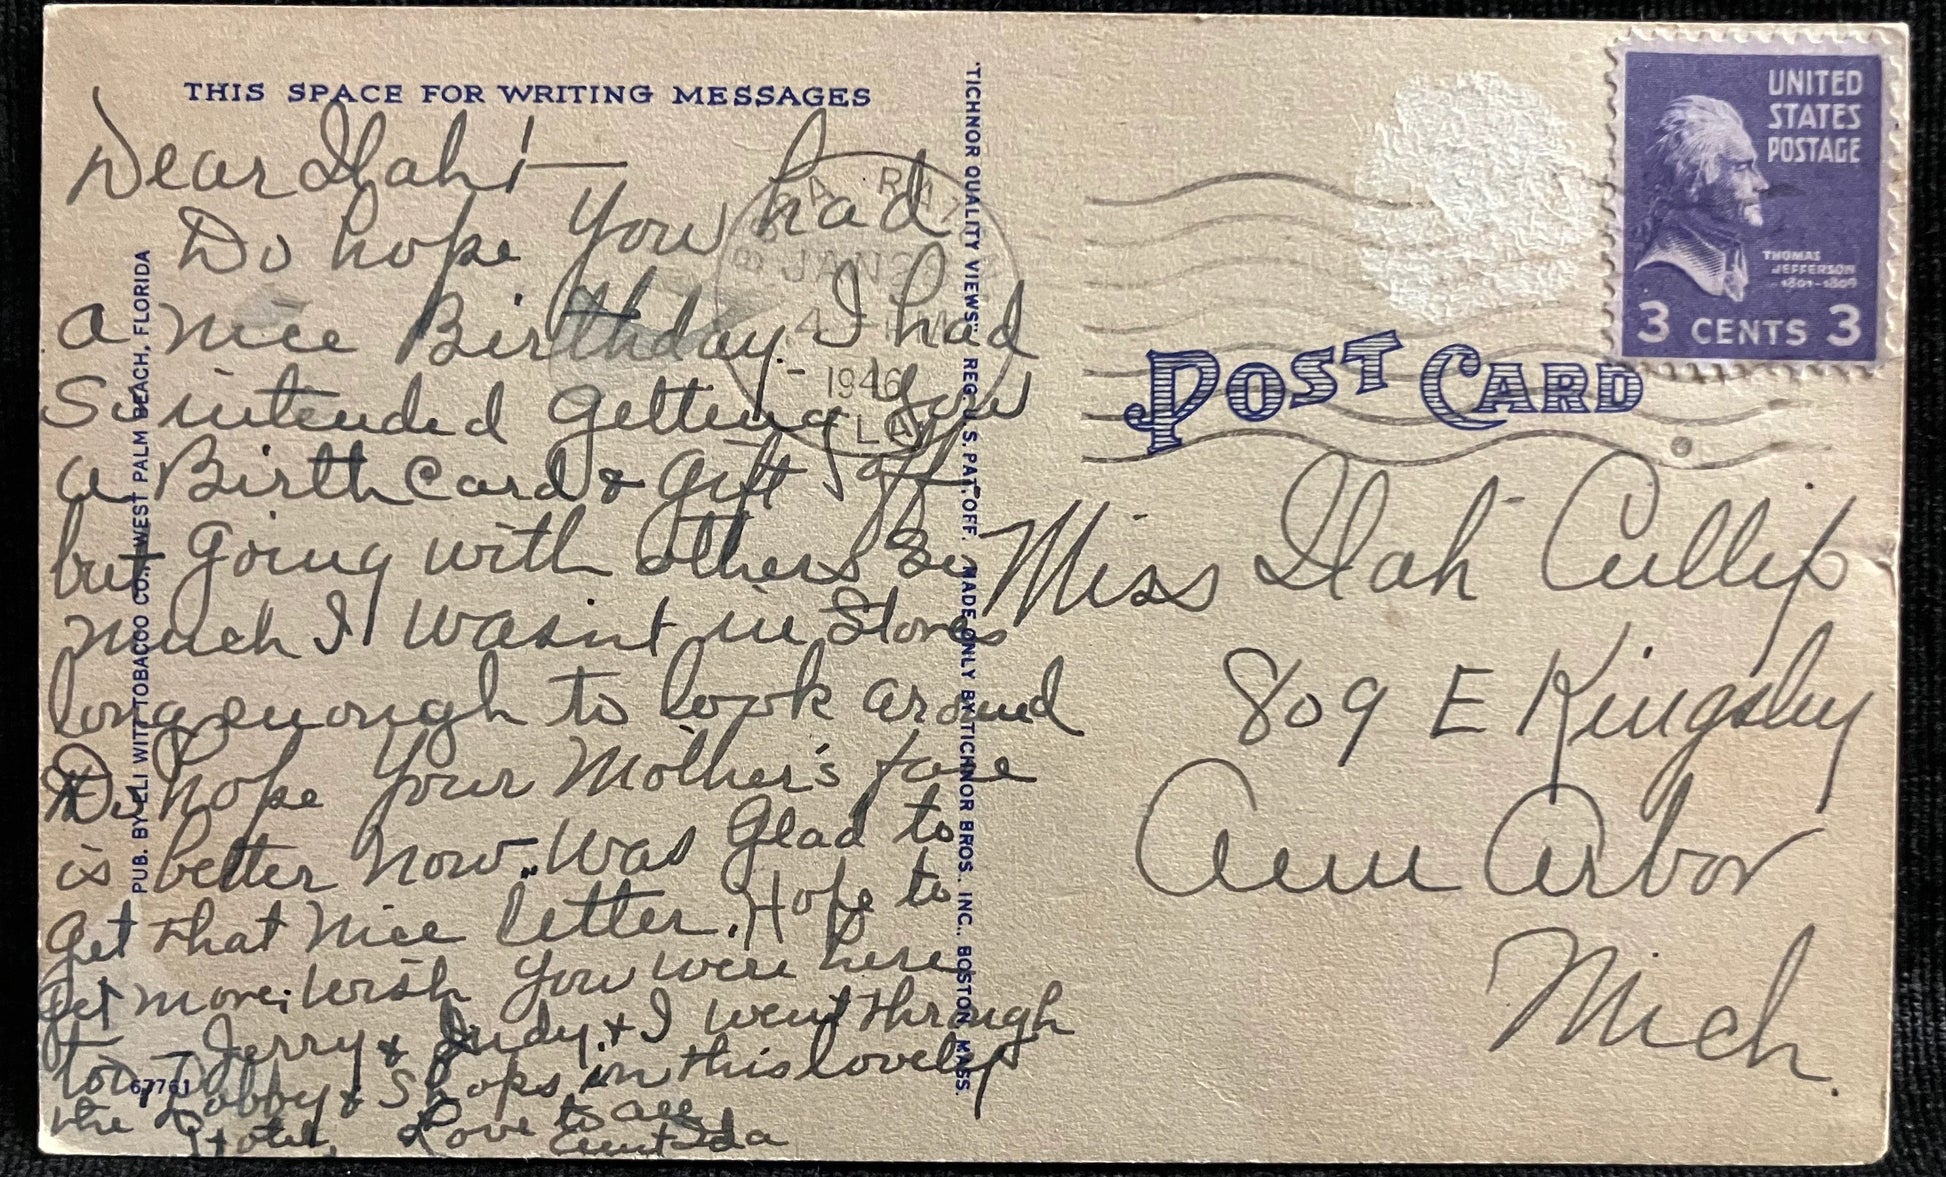 THIS SPACE FOR WRITING MESSAGES
Dear Ilah!—
Do hope you had
a nice Birthday. I had
So intended getting you
a Birth Card & gift
but going with others so
much I wasn't in Stores
long enough to look around
Do hope your Mother's face
is better now. Was Glad to
get that nice letter. Hope to
get more; wish you were here
too, – Jerry & Judy & I went through
the Lobby & Shops in this lovely
Hotel. Love to all
Aunt Ida
PUB. BY ELI WITT TOBACCO CO., WEST PALM BEACH, FLORIDA
67761
"TICHNOR QUALITY VIEWS," REG. U. S. PAT. OFF. MADE ONLY BY TICHNOR BROS., INC., BOSTON, MASS.
RAT
JAN
4 - PM
1946
FLA
UNITED
STATES
POSTAGE
THOMAS
JEFFERSON
1801-1809
3 CENTS 3
POST CARD
Miss Ilah Cullip
809 E Kingsley
Ann Arbor
Mich.